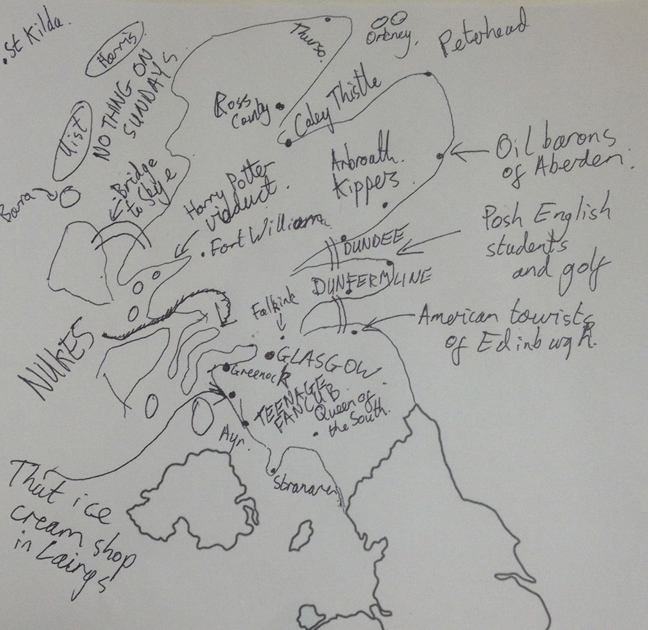 St Kilda.
Harris
Thurso.
Orkney.
Peterhead
NOTHING ON
SUNDAYS
Uist
Ross
County
Caley Thistle
Barra
Bridge
to Skye
Harry Potter
viaduct.
Arbroath.
Kippers
Oil barons
of Aberdeen.
Fort William
DUNDEE
Posh English
students
and golf
DUNFERMLINE
Falkirk
American tourists
of Edinburgh.
NUKES
GLASGOW
Greenock
TEENAGE
FANCLUB
Queen of
the South.
Ayr.
Stranraer
That ice
cream shop
in Lairgs